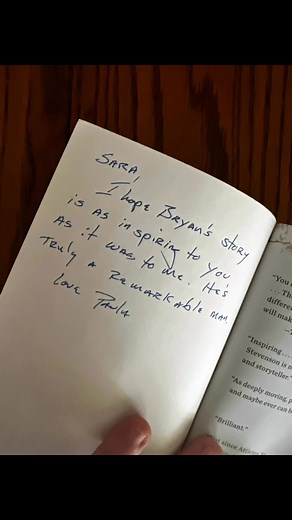 SARA,
I hope BRYAN'S STORY
is AS inspiring to you
AS it was to me. He's
TRuly A REMARKABLE MAN
Love PAULA
"You
. . . Th
differe
will mak
"Inspiring . . .
Stevenson is
and storyteller."
"As deeply moving, p
and maybe ever can b
"Brilliant."
since Atticus